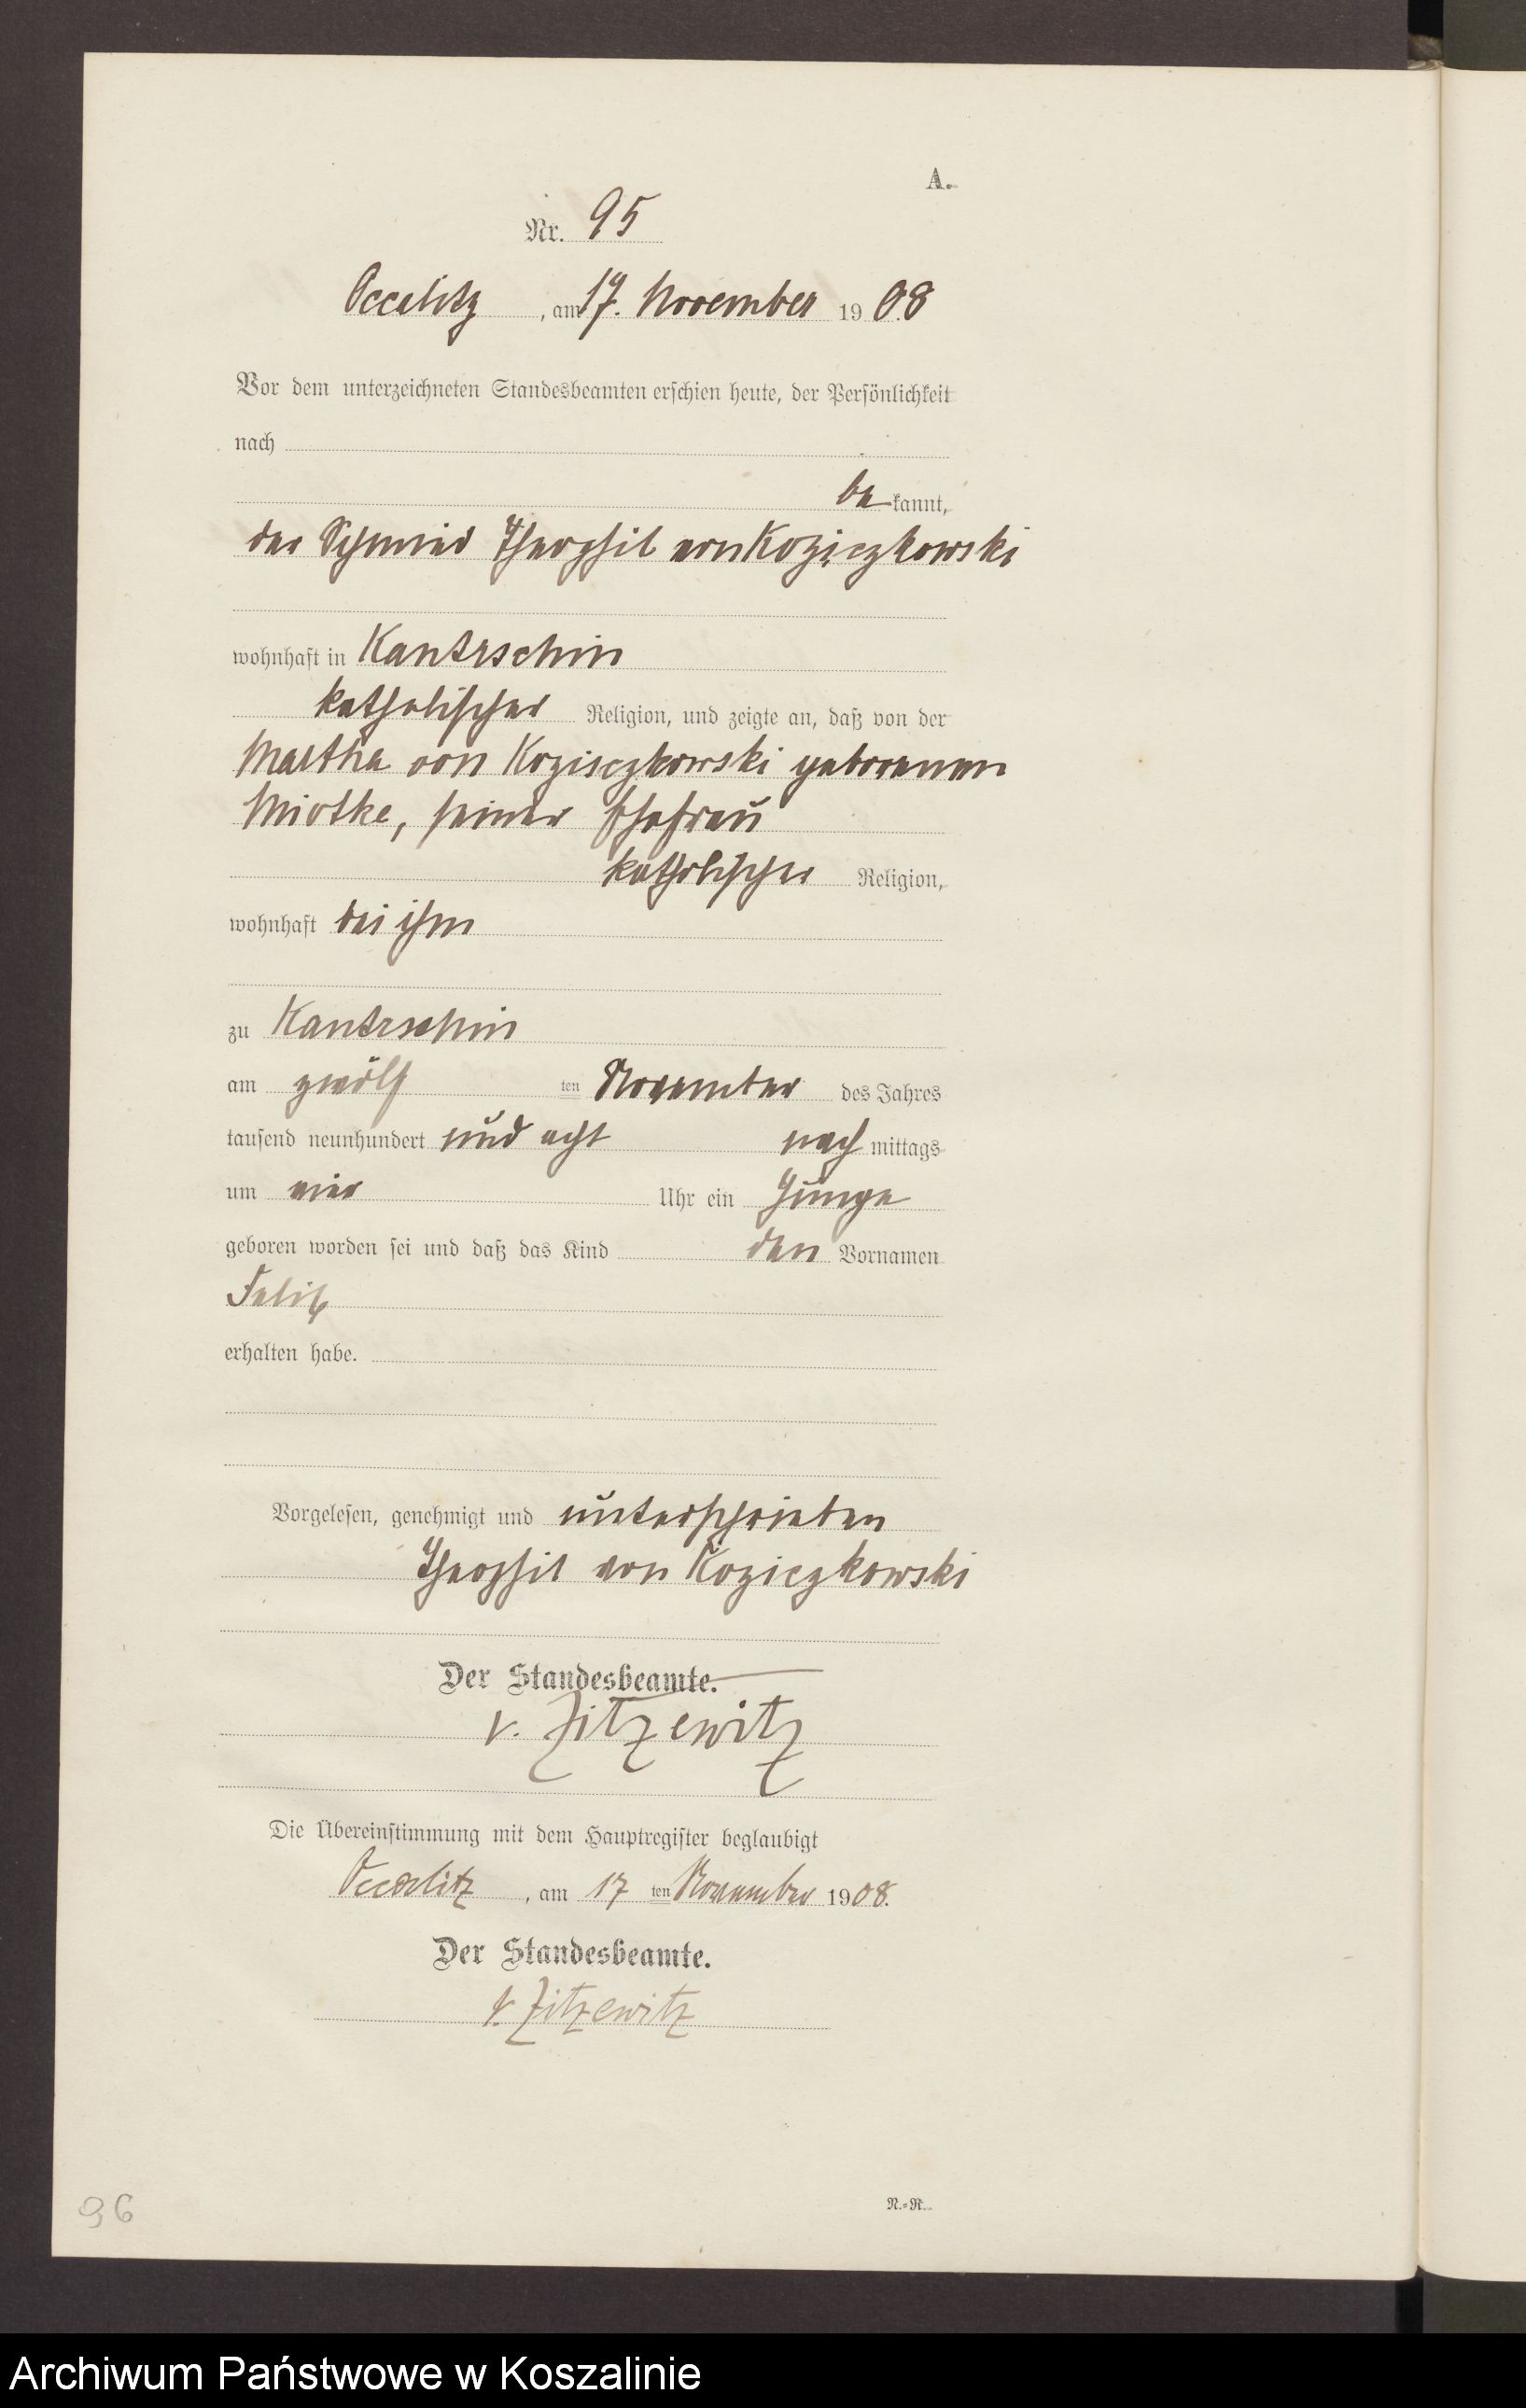 A.
Nr. 95
Occalitz, am 17. November 1908
Vor dem unterzeichneten Standesbeamten erschien heute, der Persönlichkeit
nach
be kannt,
der Schmied Theophil von Koziczkowski
wohnhaft in Kantrschin
katholischer Religion, und zeigte an, daß von der
Martha von Koziczkowski geborenen
Miotke, seiner Ehefrau
katholischer Religion,
wohnhaft bei ihm
zu Kantrschin
am zwölf ten November des Jahres
tausend neunhundert und acht nach mittags
um vier Uhr ein Junge
geboren worden sei und daß das Kind den Vornamen
Felix
erhalten habe.
Vorgelesen, genehmigt und unterschrieben
Theophil von Koziczkowski
Der Standesbeamte.
v. Zitzewitz
Die Übereinstimmung mit dem Hauptregister beglaubigt
Occalitz, am 17 ten November 1908.
Der Standesbeamte.
v. Zitzewitz
96
N.-R.
Archiwum Państwowe w Koszalinie